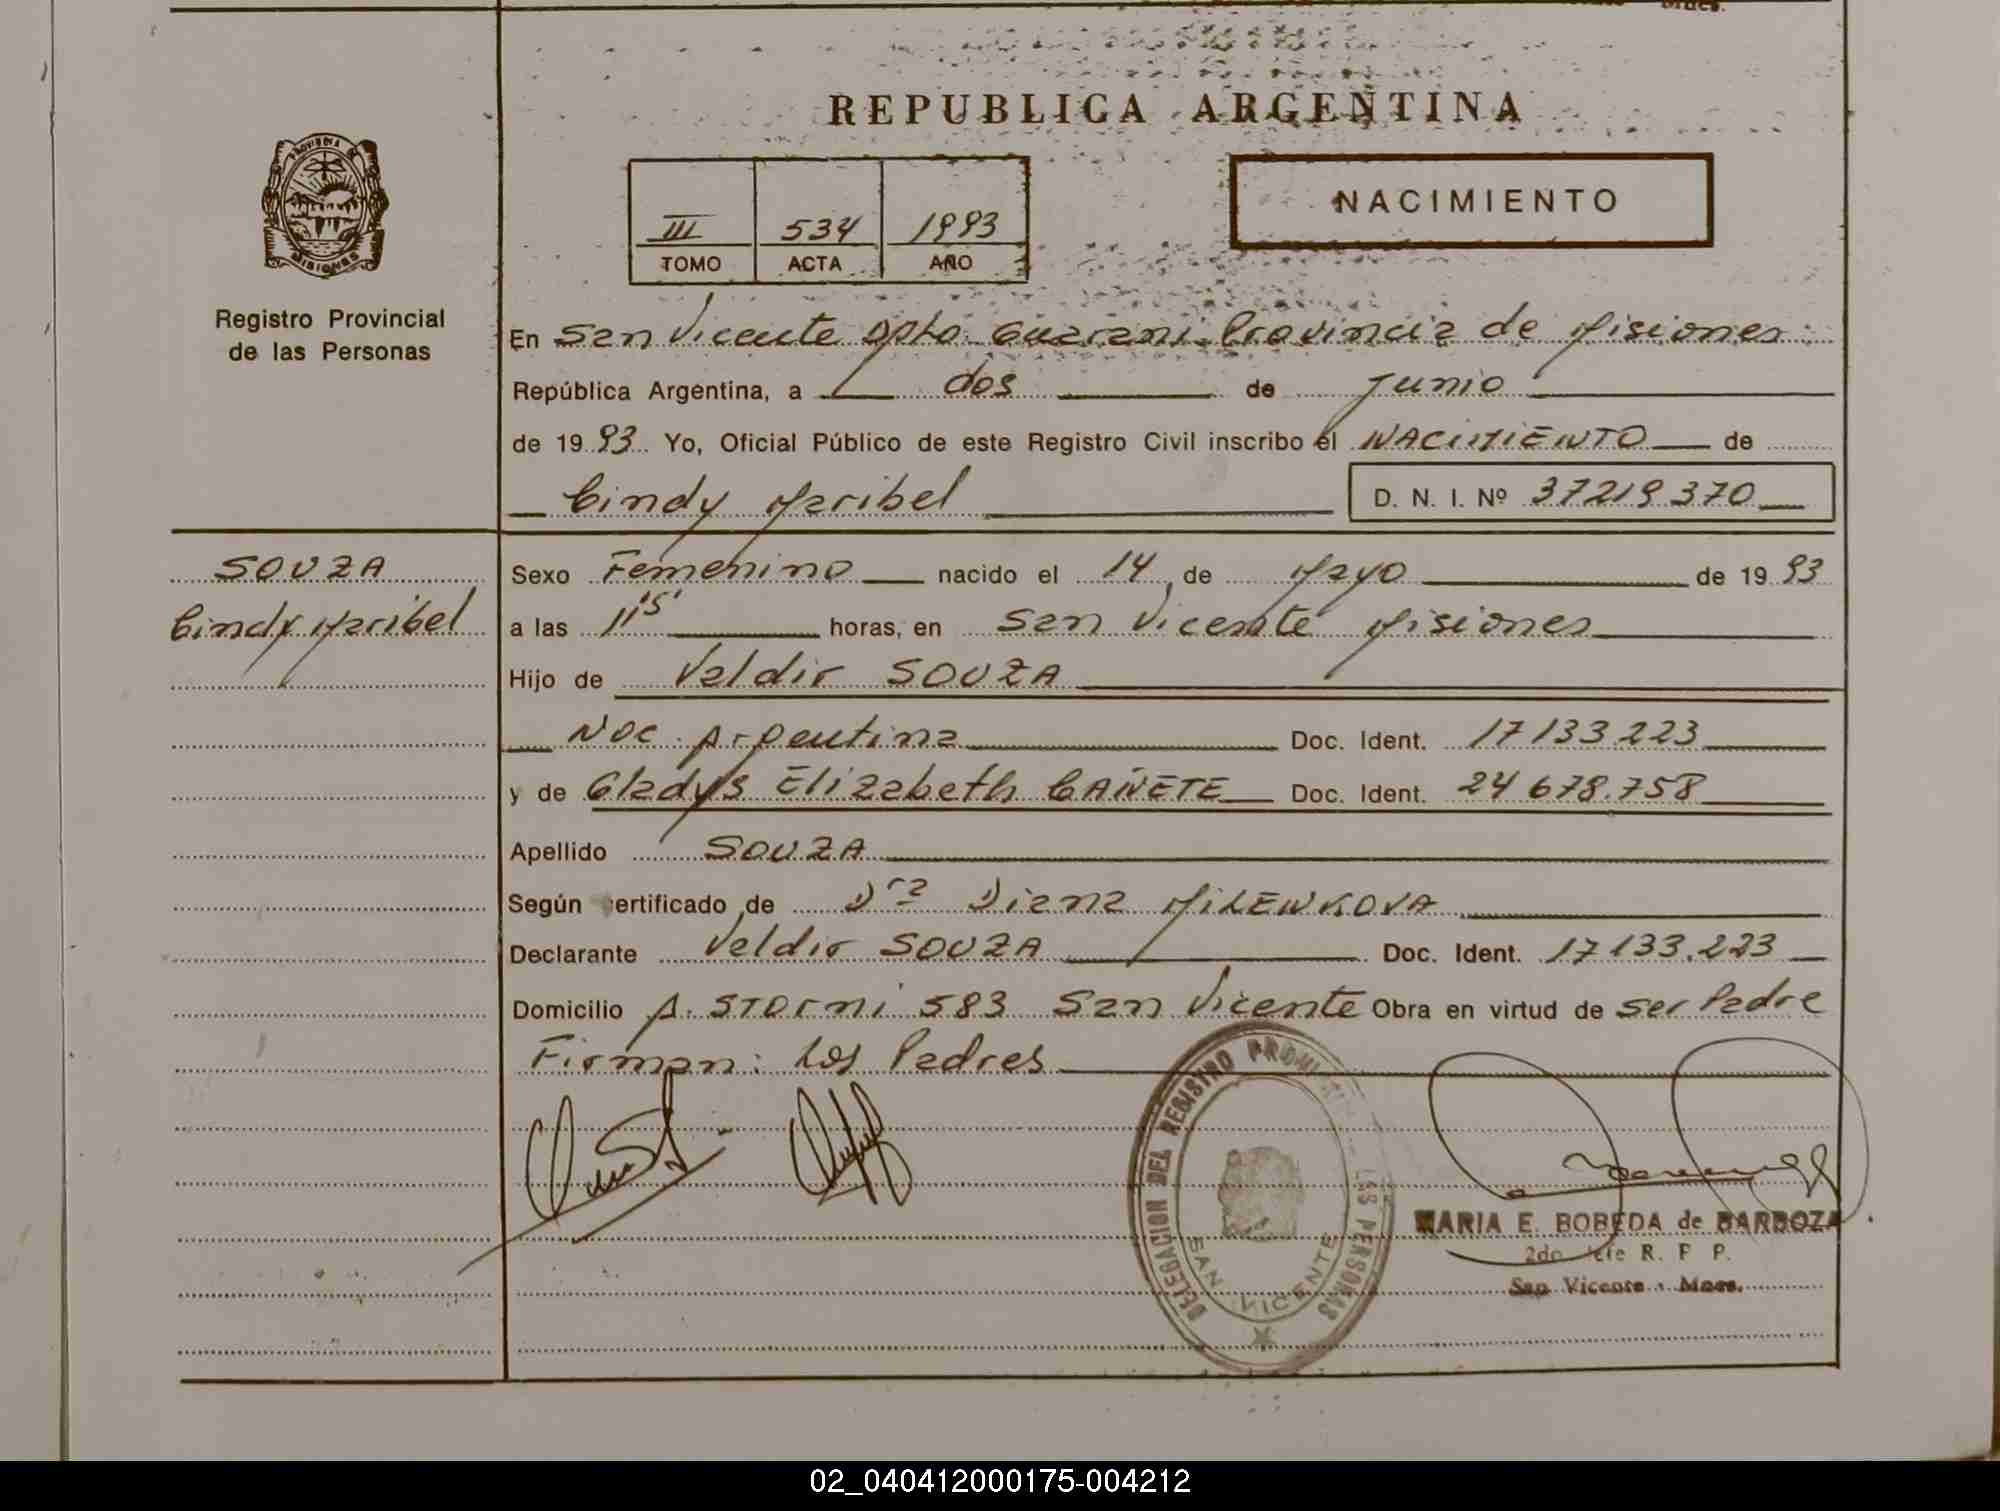 REPUBLICA ARGENTINA
PROVINCIA DE
MISIONES
Registro Provincial
de las Personas
III 534 1993
TOMO ACTA AÑO
NACIMIENTO
En San Vicente Dpto. Guarani Provincia de Misiones
República Argentina, a dos de Junio
de 1993 Yo, Oficial Público de este Registro Civil inscribo el NACIMIENTO de
Cindy Maribel D. N. I. Nº 37219370
SOUZA
Cindy Maribel
Sexo Femenino nacido el 14 de Mayo de 1993
a las 11'15' horas, en San Vicente Misiones
Hijo de Valdir SOUZA
Nac. Argentina Doc. Ident. 17133.223
y de Gladys Elizabeth CAÑETE Doc. Ident. 24678.758
Apellido SOUZA
Según certificado de Dra Diana MILENKOVA
Declarante Valdir SOUZA Doc. Ident. 17133.223
Domicilio A. STORNI 583 San Vicente Obra en virtud de ser Padre
Firman: Los Padres
DELEGACION DEL REGISTRO PROVINCIAL LAS PERSONAS
SAN VICENTE
MARIA E. BOBEDA de BARBOZA
2do Jefe R. P P.
San Vicente - Mnes.
02_040412000175-004212